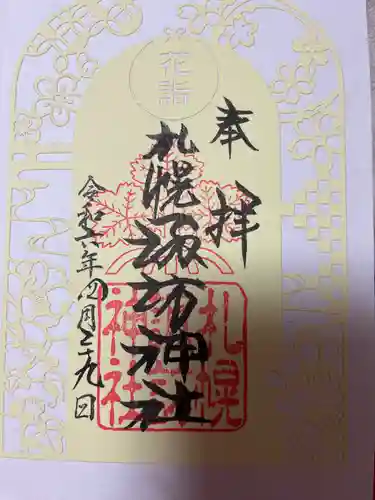 花詣
奉拝
札幌諏訪神社
札幌諏訪神社
令和六年四月二十九日